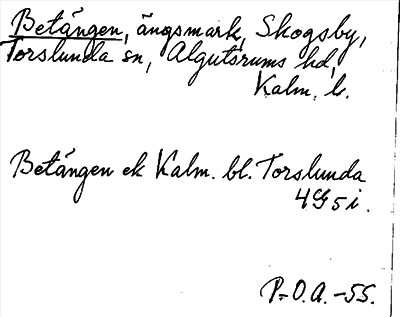 Betängen, ängsmark, Skogsby,
Torslunda sn, Algutsrums hd,
Kalm. l.
Betängen ek Kalm. bl. Torslunda
4G5i.
P-O.A.-55.